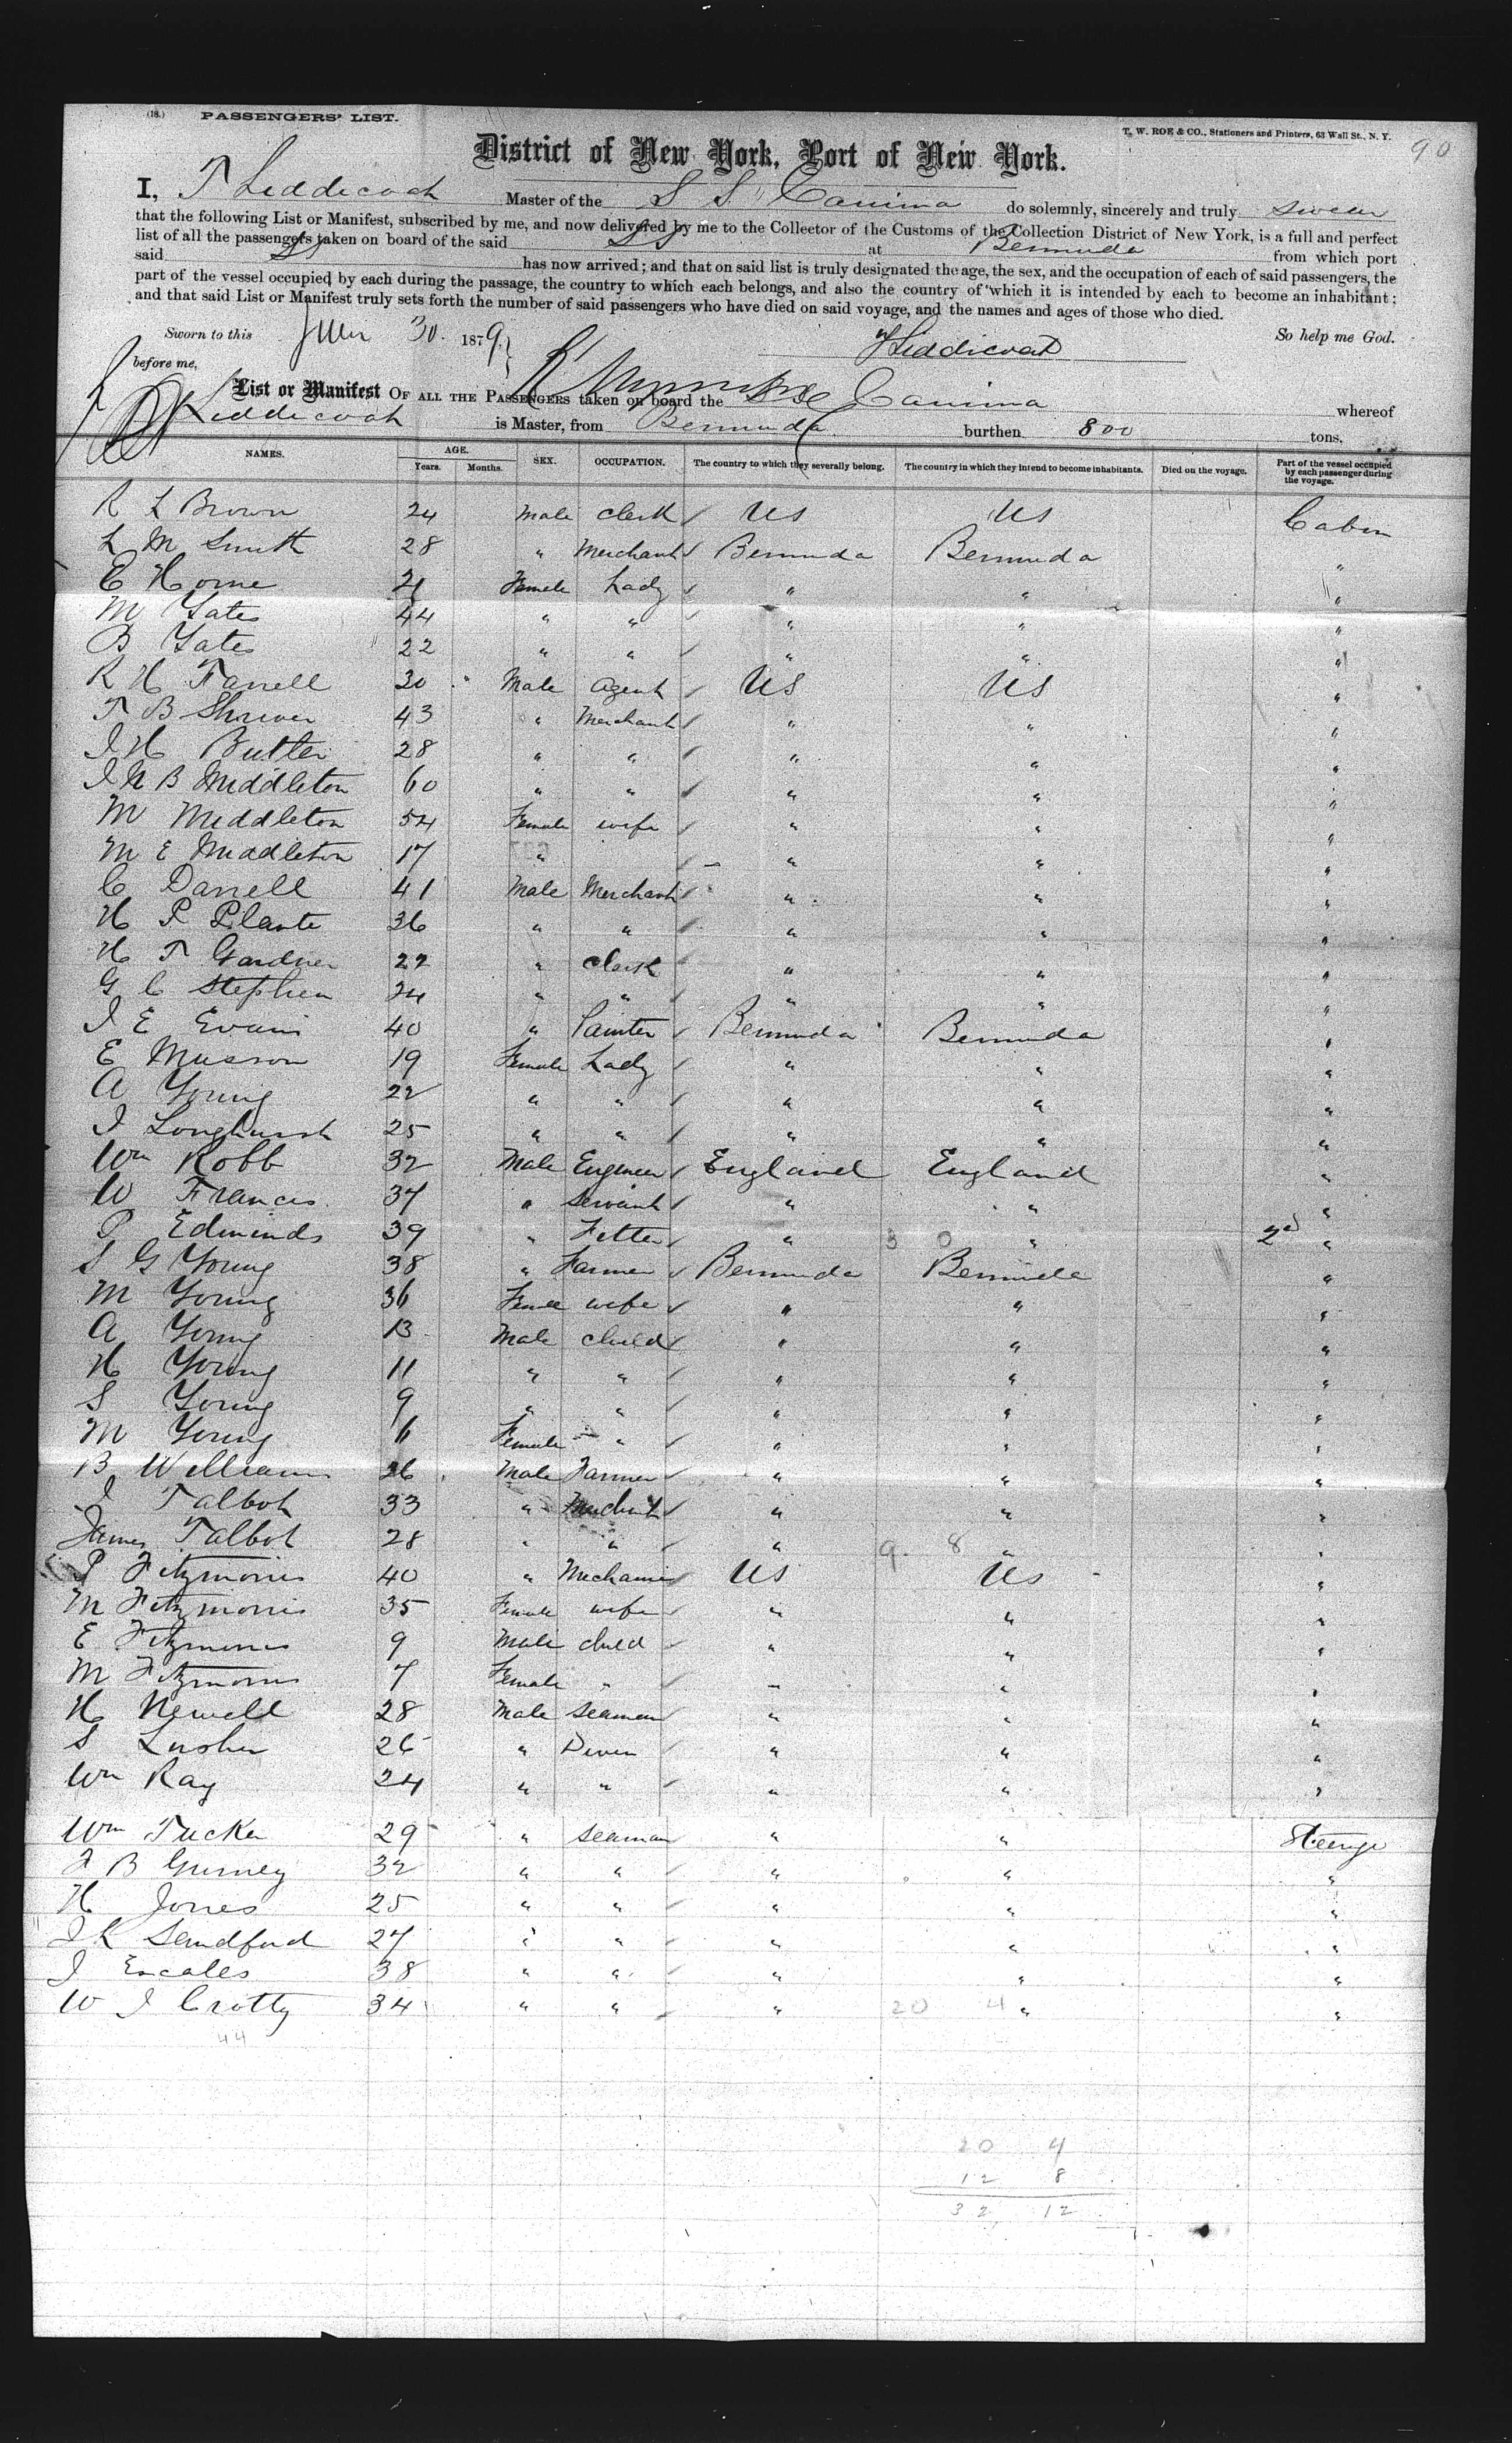 (18.) PASSENGERS' LIST.
T. W. ROE & CO., Stationers and Printers, 63 Wall St., N. Y.
90
District of New York, Port of New York.
I, T Liddicoat Master of the S S Canima do solemnly, sincerely and truly swear
that the following List or Manifest, subscribed by me, and now delivered by me to the Collector of the Customs of the Collection District of New York, is a full and perfect
list of all the passengers taken on board of the said SS at Bermuda from which port
said SS has now arrived; and that on said list is truly designated the age, the sex, and the occupation of each of said passengers, the
part of the vessel occupied by each during the passage, the country to which each belongs, and also the country of which it is intended by each to become an inhabitant;
and that said List or Manifest truly sets forth the number of said passengers who have died on said voyage, and the names and ages of those who died.
Sworn to this 30. 1879. T Liddicoat So help me God.
before me,
List or Manifest OF ALL THE PASSENGERS taken on board the Canima whereof
Liddicoat is Master, from Bermuda burthen 800 tons.
NAMES. AGE. Years. Months. SEX. OCCUPATION. The country to which they severally belong. The country in which they intend to become inhabitants. Died on the voyage. Part of the vessel occupied by each passenger during the voyage.
R L Brown 24 Male Clerk US US Cabin
L M Smith 28 " Merchant Bermuda Bermuda "
E Horne 21 Female Lady " " "
M Yates 44 " " " " "
B Yates 22 " " " " "
R H Farrell 30 Male Agent US US "
T B Shriver 43 " Merchant " " "
J H Butler 28 " " " " "
J N B Middleton 60 " " " " "
M Middleton 54 Female wife " " "
M E Middleton 17 " " " "
C Darrell 41 Male Merchant " " "
H P Plante 36 " " " " "
H T Gardner 22 " Clerk " " "
G C Stephen 24 " " " " "
J E Evans 40 " Painter Bermuda Bermuda "
E Musson 19 Female Lady " " "
A Young 22 " " " " "
J Longhurst 25 " " " " "
Wm Robb 32 Male Engineer England England "
W Francis 37 " Servant " " "
P Edmunds 39 " Fitter " 3 0 " 2nd "
S G Young 38 " Farmer Bermuda Bermuda "
M Young 36 Female wife " " "
A Young 13 Male child " " "
H Young 11 " " " " "
S Young 9 " " " " "
M Young 6 Female " " " "
B Williams 26 Male Farmer " " "
J Talbot 33 " Merchant " " "
James Talbot 28 " " " 9 8 " "
P Fitzmorris 40 " Mechanic US US "
M Fitzmorris 35 Female wife " " "
E Fitzmorris 9 Male child " " "
M Fitzmorris 7 Female " " " "
H Newell 28 Male Seaman " " "
S Lusher 26 " Diver " " "
Wm Ray 24 " " " " "
Wm Tucker 29 " Seaman " " Steerage
F B Gurney 32 " " " " "
H Jones 25 " " " " "
J K Sandford 27 " " " " "
J Escales 38 " " " " "
W J Crotty 34 " " " 20 4 " "
44
20 4
12 8
32 12